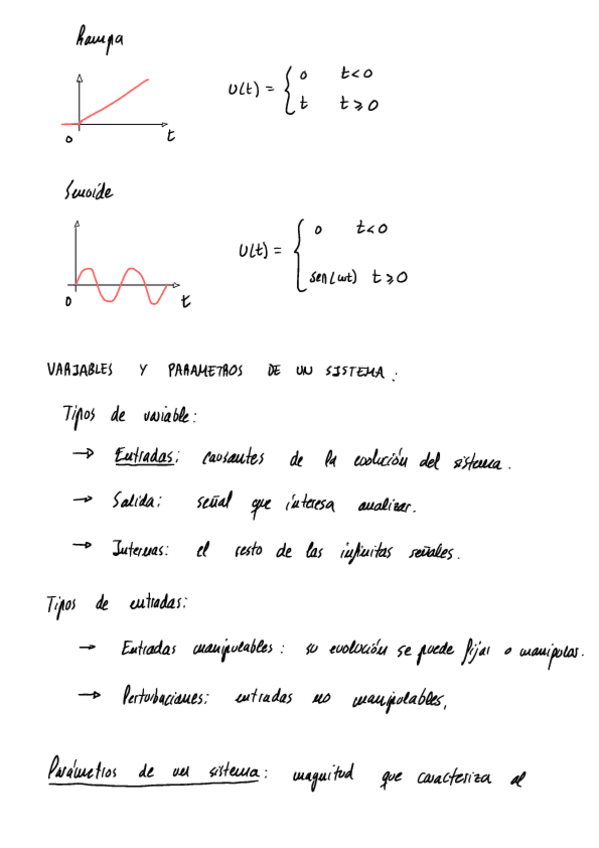 Rampa
U(t) = { 0 t<0
t t≥0
0 t
Senoide
U(t) = { 0 t<0
sen(ωt) t≥0
0 t
VARIABLES Y PARAMETROS DE UN SISTEMA:
Tipos de variable:
→ Entradas: causantes de la evolución del sistema.
→ Salida: señal que interesa analizar.
→ Internas: el resto de las infinitas señales.
Tipos de entradas:
→ Entradas manipulables: su evolución se puede fijar o manipular.
→ Perturbaciones: entradas no manipulables.
Parámetros de un sistema: magnitud que caracteriza al